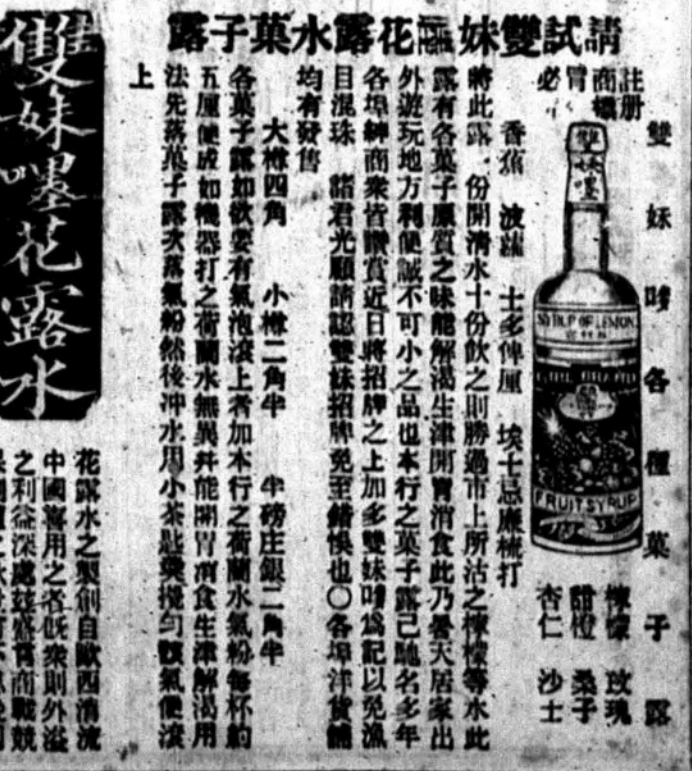 請試雙妹嘜花露水菓子露
雙妹嘜各種菓子露
註册商標
冒必
雙妹嘜
SYRUP OF LEMON
FRUIT SYRUP
檸檬 玫瑰
甜橙 桑子
杏仁 沙士
香蕉 波蘿 士多俾厘 埃士忌廉梳打
將此露一份開清水十份飲之則勝過市上所沽之檸檬等水此
露有各菓子原質之味能解渴生津開胃消食此乃暑天居家出
外遊玩地方利便誠不可小之品也本行之菓子露已馳名多年
各埠紳商衆皆讚賞近日將招牌之上加多雙妹嘜爲記以免漁
目混珠 諸君光顧請認雙妹招牌免至錯悞也〇各埠洋貨舖
均有發售
大樽四角 小樽二角半 半磅庄銀二角半
各菓子露如欲要有氣泡滾上者加本行之荷蘭水氣粉每杯約
五厘便成如機器打之荷蘭水無異幷能開胃消食生津解渴用
法先落菓子露次落氣粉然後冲水用小茶匙羮攪勻該氣便滾
上
雙妹嘜花露水
花露水之製創自歐西消流
中國喜用之者旣衆則外溢
之利益深處茲盛舊商戰競